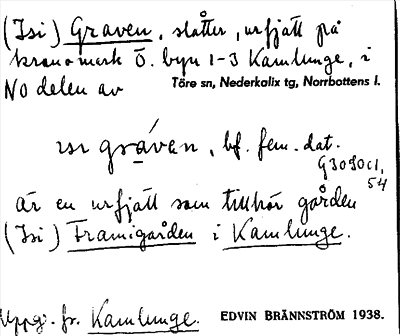 (Isi) Graven, slåtter, urfjäll på
kronomark Ö. byn 1-3 Kamlunge, i
NO delen av Töre sn, Nederkalix tg, Norrbottens l.
ısı gráven, bf. fem. dat.
G3090c1,
54
Är en urfjäll som tillhör gården
(Isi) Framigården i Kamlunge.
Uppg. fr. Kamlunge. EDVIN BRÄNNSTRÖM 1938.